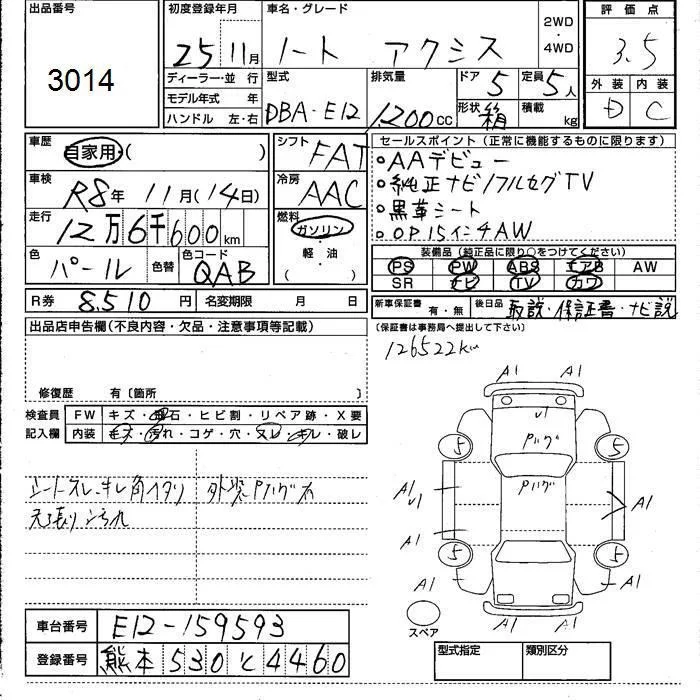 出品番号
3014
初度登録年月
25 11月
車名・グレード
ノート アクシス
2WD
・
4WD
評価点
3.5
外装 内装
D C
ディーラー・並行
モデル年式 年
ハンドル 左・右
型式
DBA-E12
排気量
1200cc
ドア 5
定員 5人
形状 箱
積載 kg
車歴
自家用・( )
車検
R8年 11月(14日)
走行
12万6千600km
色
パール
色替
色コード
QAB
シフト
FAT
冷房
AAC
燃料
ガソリン
・
軽油
( )
セールスポイント(正常に機能するものに限ります)
○AAデビュー
○純正ナビ/フルセグTV
○黒革シート
○OP15インチAW
装備品(純正品に限り○をつけてください)
PS PW ABS エアB AW
SR ナビ TV カワ
R券 8,510円
名変期限 月 日
新車保証書 有・無
後日品 取説・保証書・ナビ説
(保証書は事務局へ提出して下さい)
出品店申告欄(不良内容・欠品・注意事項等記載)
126522km
修復歴 有〔箇所 〕
検査員記入欄
FW キズ・飛石・ヒビ割・リペア跡・X要
内装 キズ・汚れ・コゲ・穴・スレ・キレ・破レ
シートスレ、キレ角イタリ
天張り汚れ
外装Pハゲ大
A1 A1
U1
Pハゲ
5 5
Pハゲ
A1
U1
A1
A1
5 5
A1 A1
A1 A1
スペア
車台番号 E12-159593
登録番号 熊本 530 と 4460
型式指定 類別区分